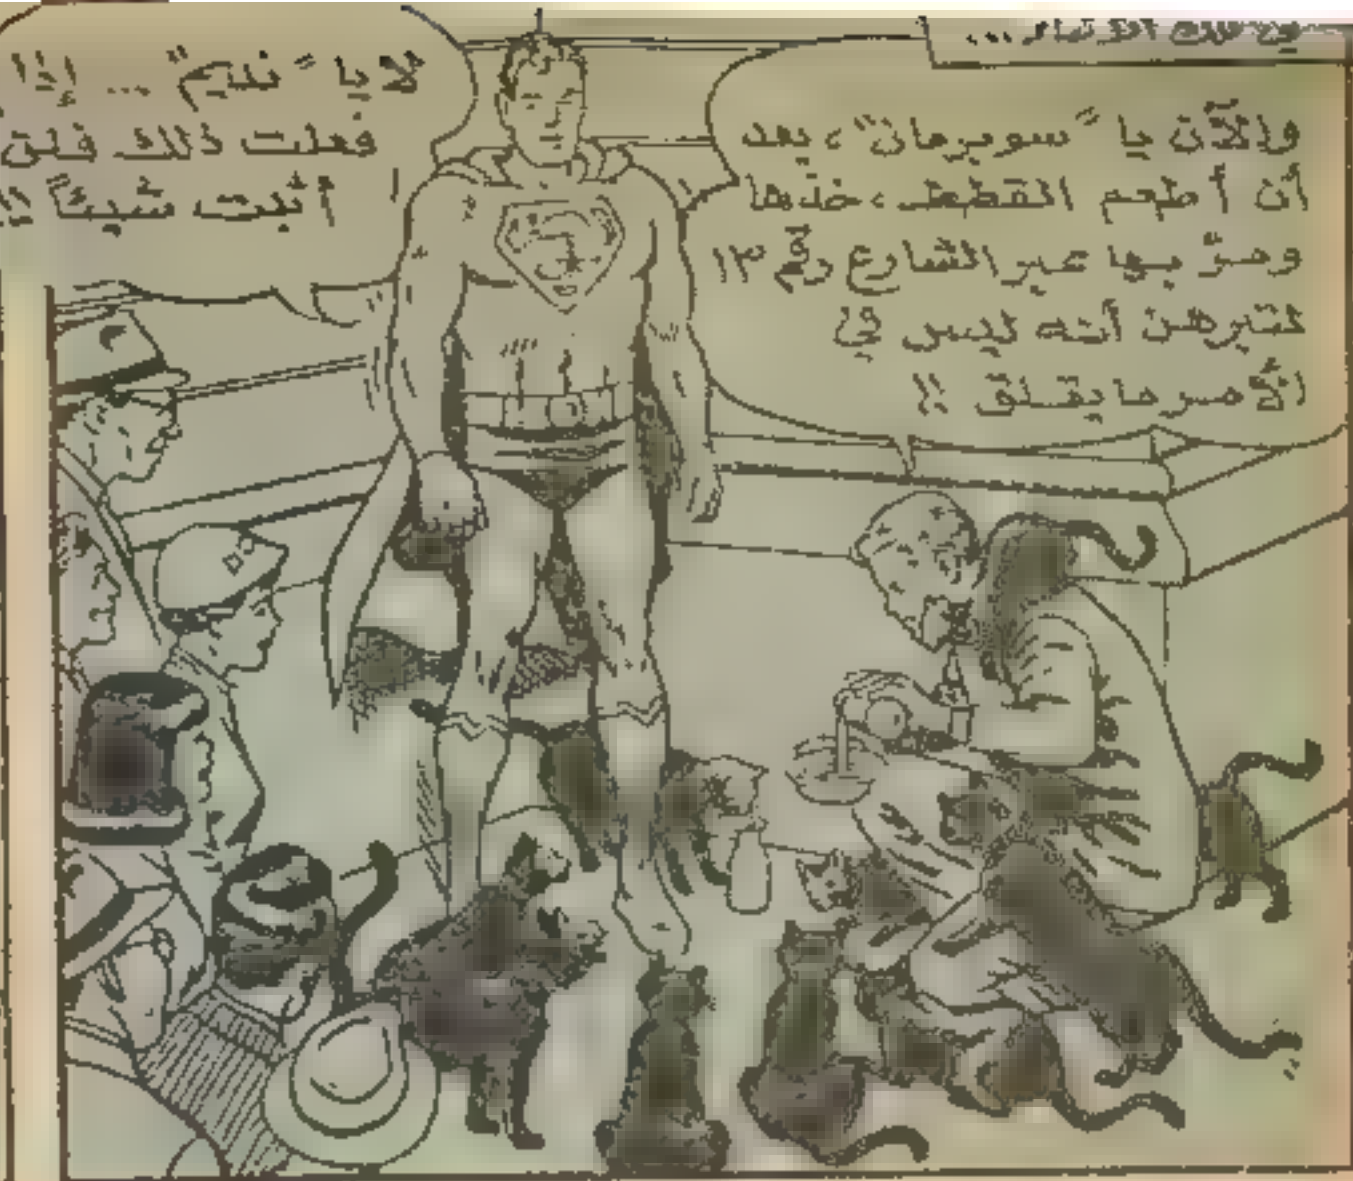 والآن يا "سوبرمان"، بعد
أن أطعم القطط، خذها
ومرّ بها عبر الشارع رقم ١٣
لتبرهن أنه ليس في
الأمر ما يقلق !!
لا يا "نديم" ... إذا
فعلت ذلك فلن
أثبت شيئاً !!